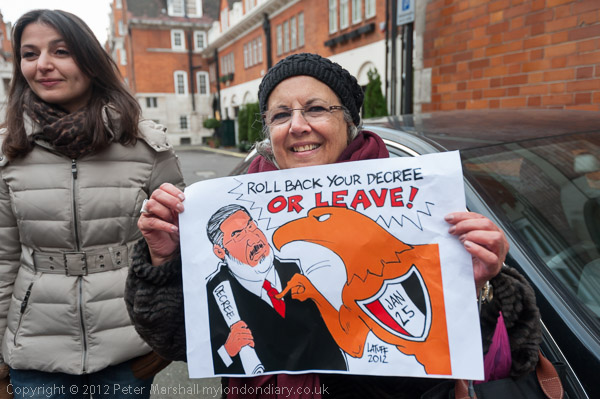 ROLL BACK YOUR DECREE
OR LEAVE!
DECREE
JAN
25
LATUFF
2012
Copyright © 2012 Peter Marshall mylondondiary.co.uk